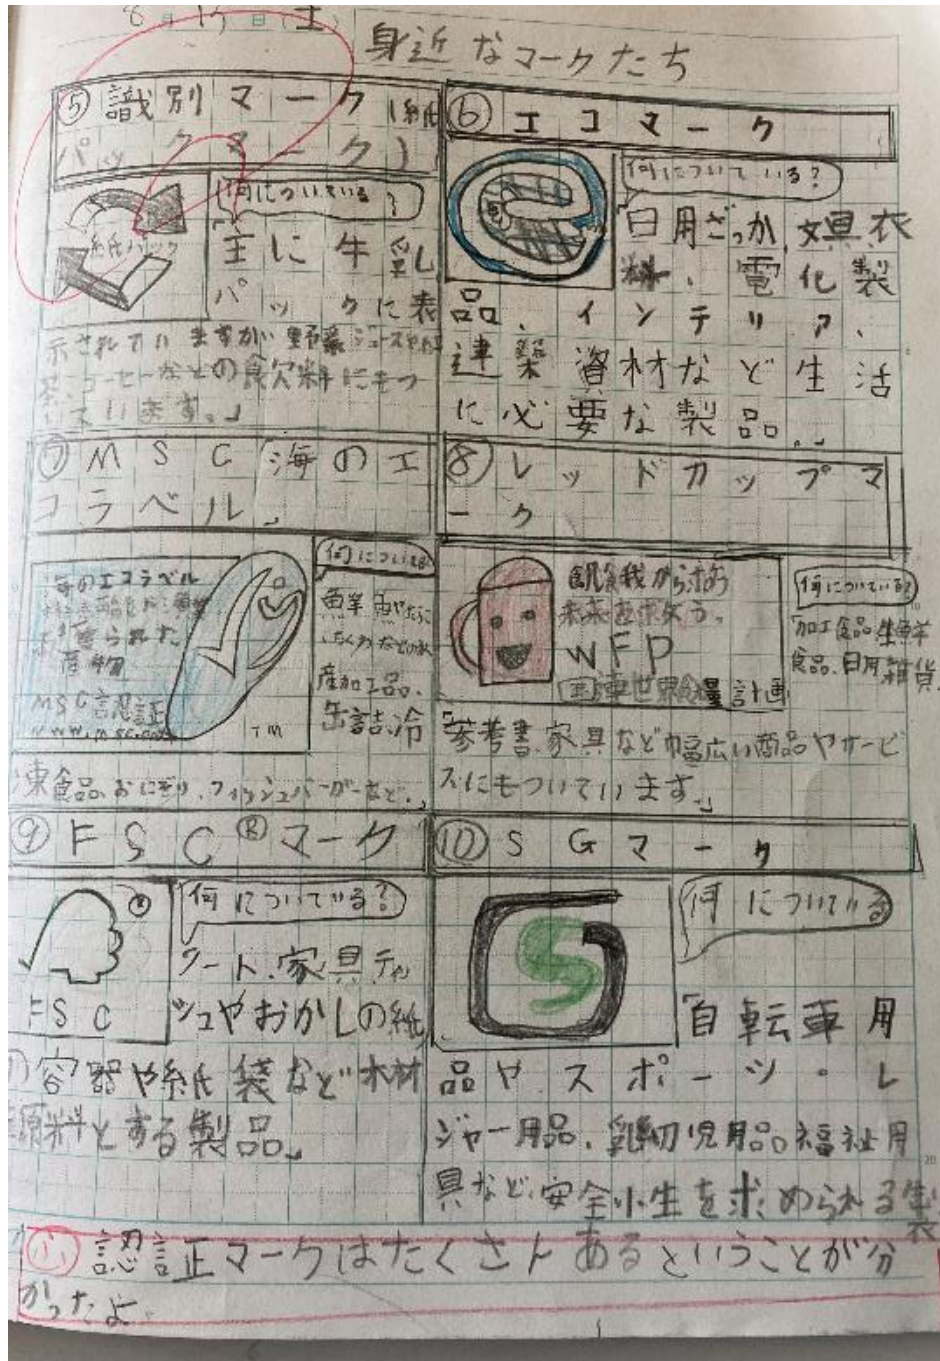 8月15日(土)
身近なマークたち
⑤識別マーク(紙
パックマーク)
紙パック
何についている?
「主に牛乳
パックに表
示されていますが、野菜ジュースやお
茶、コーヒーなどの飲料にもつ
いています。」
⑥エコマーク
何についている?
「日用ざっか、文具、衣
料、電化製
品、インテリア、
建築資材など生活
に必要な製品。」
⑦MSC「海のエ
コラベル」
海のエコラベル
で獲られた
水産物
MSC認証
www.msc.org
TM
何についている
鮮魚やたらこ
、ちくわなどの水
産加工品、
缶詰、冷
凍食品、おにぎり、フィッシュバーガーなど。」
⑧レッドカップマ
ーク
飢餓から救う
未来を救う。
WFP
国連世界食糧計画
何についている?
「加工食品、生鮮
食品、日用雑貨、
参考書、家具など幅広い商品やサービ
スにもついています。」
⑨FSC®マーク
FSC
何についている?
ノート、家具、ティ
ッシュやおかしの紙
の容器や紙袋など木材
を原料とする製品。」
⑩SGマーク
何についている
「自転車用
品やスポーツ・レ
ジャー用品、乳幼児用品。福祉用
具など、安全性を求められる製
ふ 認証マークはたくさんあるということが分
かったよ。